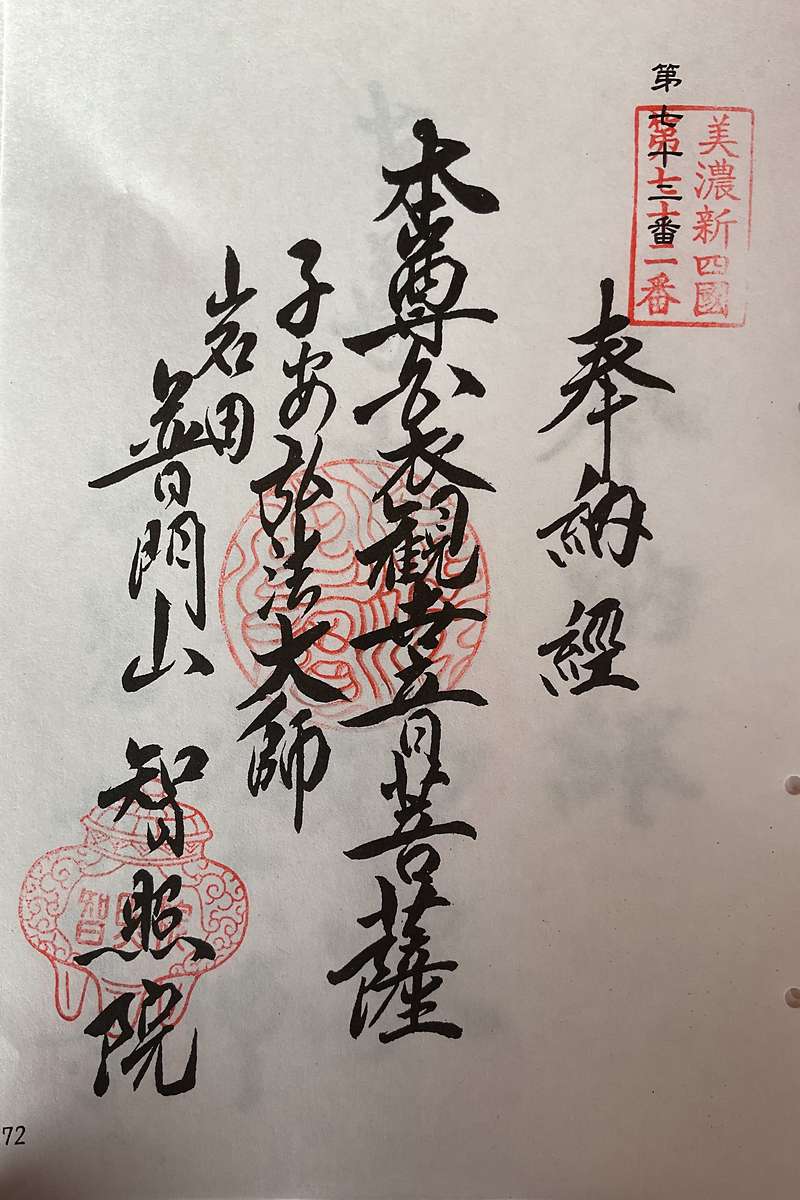 第七十二番
美濃新四國
第七十二番
奉納經
本尊白衣観世音菩薩
子安弘法大師
岩田
普門山 智照院
72